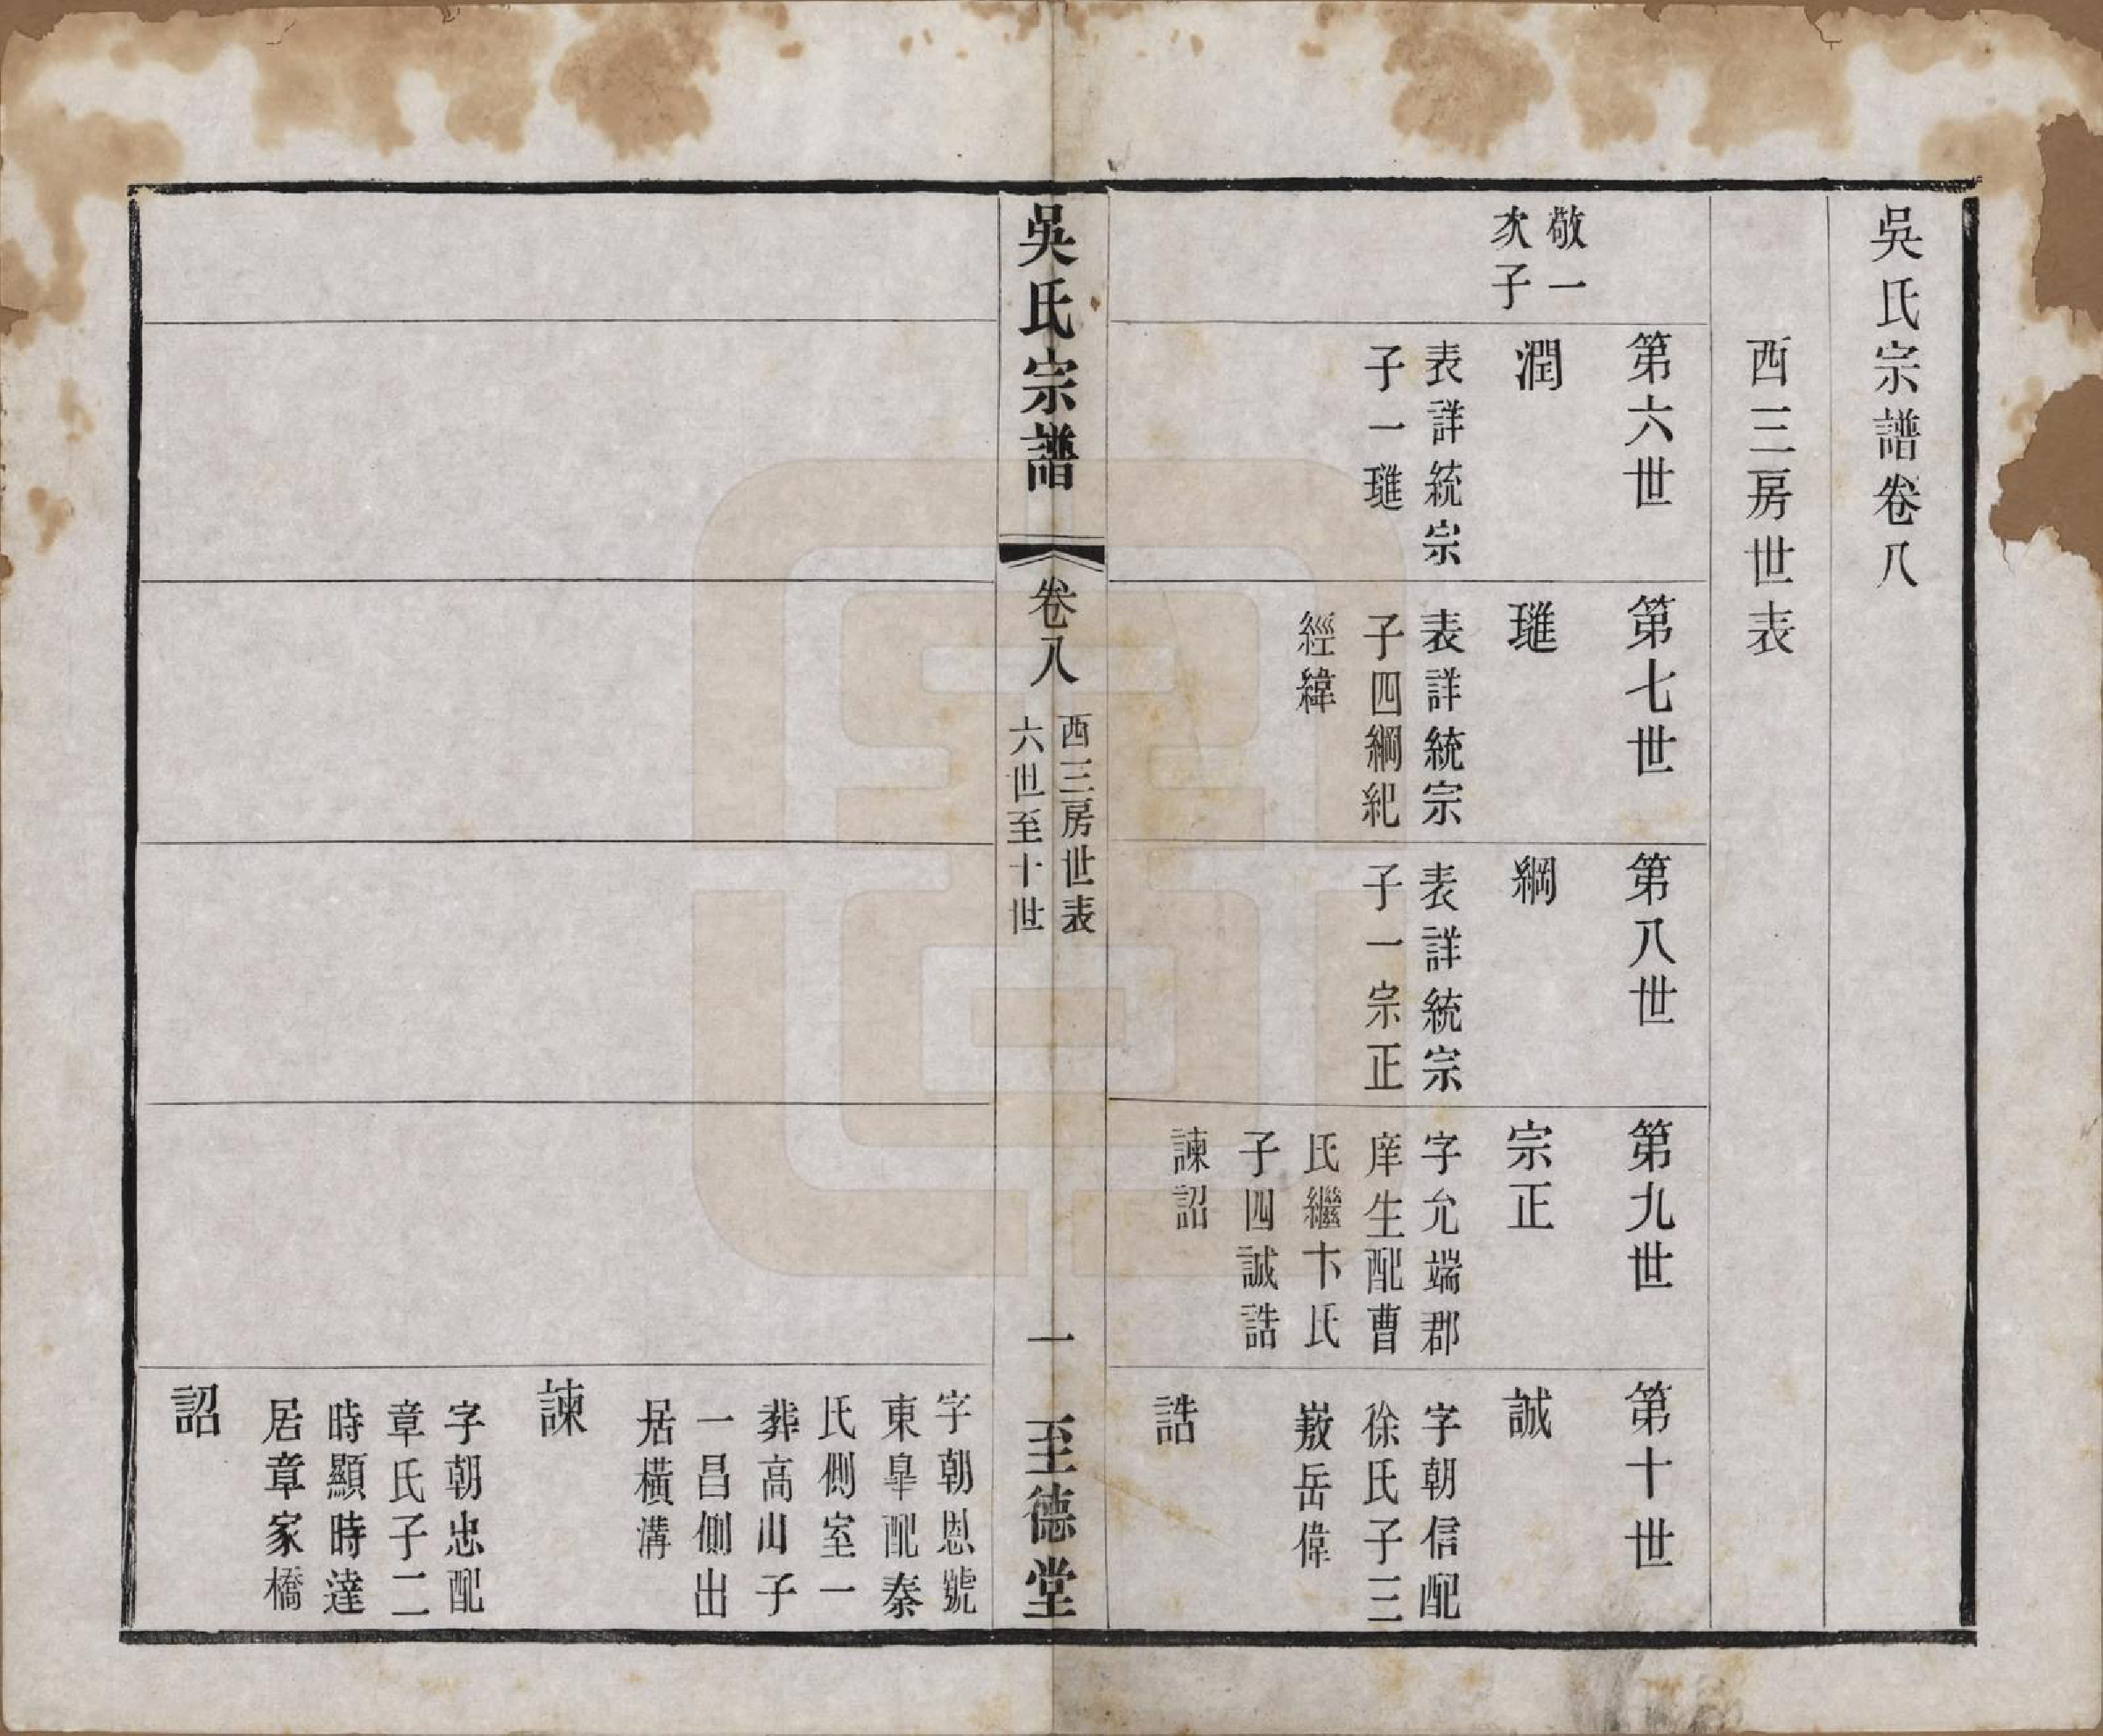 吳氏宗譜卷八
西三房世表
敬一
次子
第六世
潤
表詳統宗
子一璀
第七世
璀
表詳統宗
子四綱紀
經緯
第八世
綱
表詳統宗
子一宗正
第九世
宗正
字允端郡
庠生配曹
氏繼卞氏
子四誠誥
諫詔
第十世
誠
字朝信配
徐氏子三
嶽岳偉
誥
吳氏宗譜
卷八
西三房世表
六世至十世
一
至德堂
字朝恩號
東皐配秦
氏側室一
葬高山子
一昌側出
居橫溝
諫
字朝忠配
章氏子二
時顯時達
居章家橋
詔